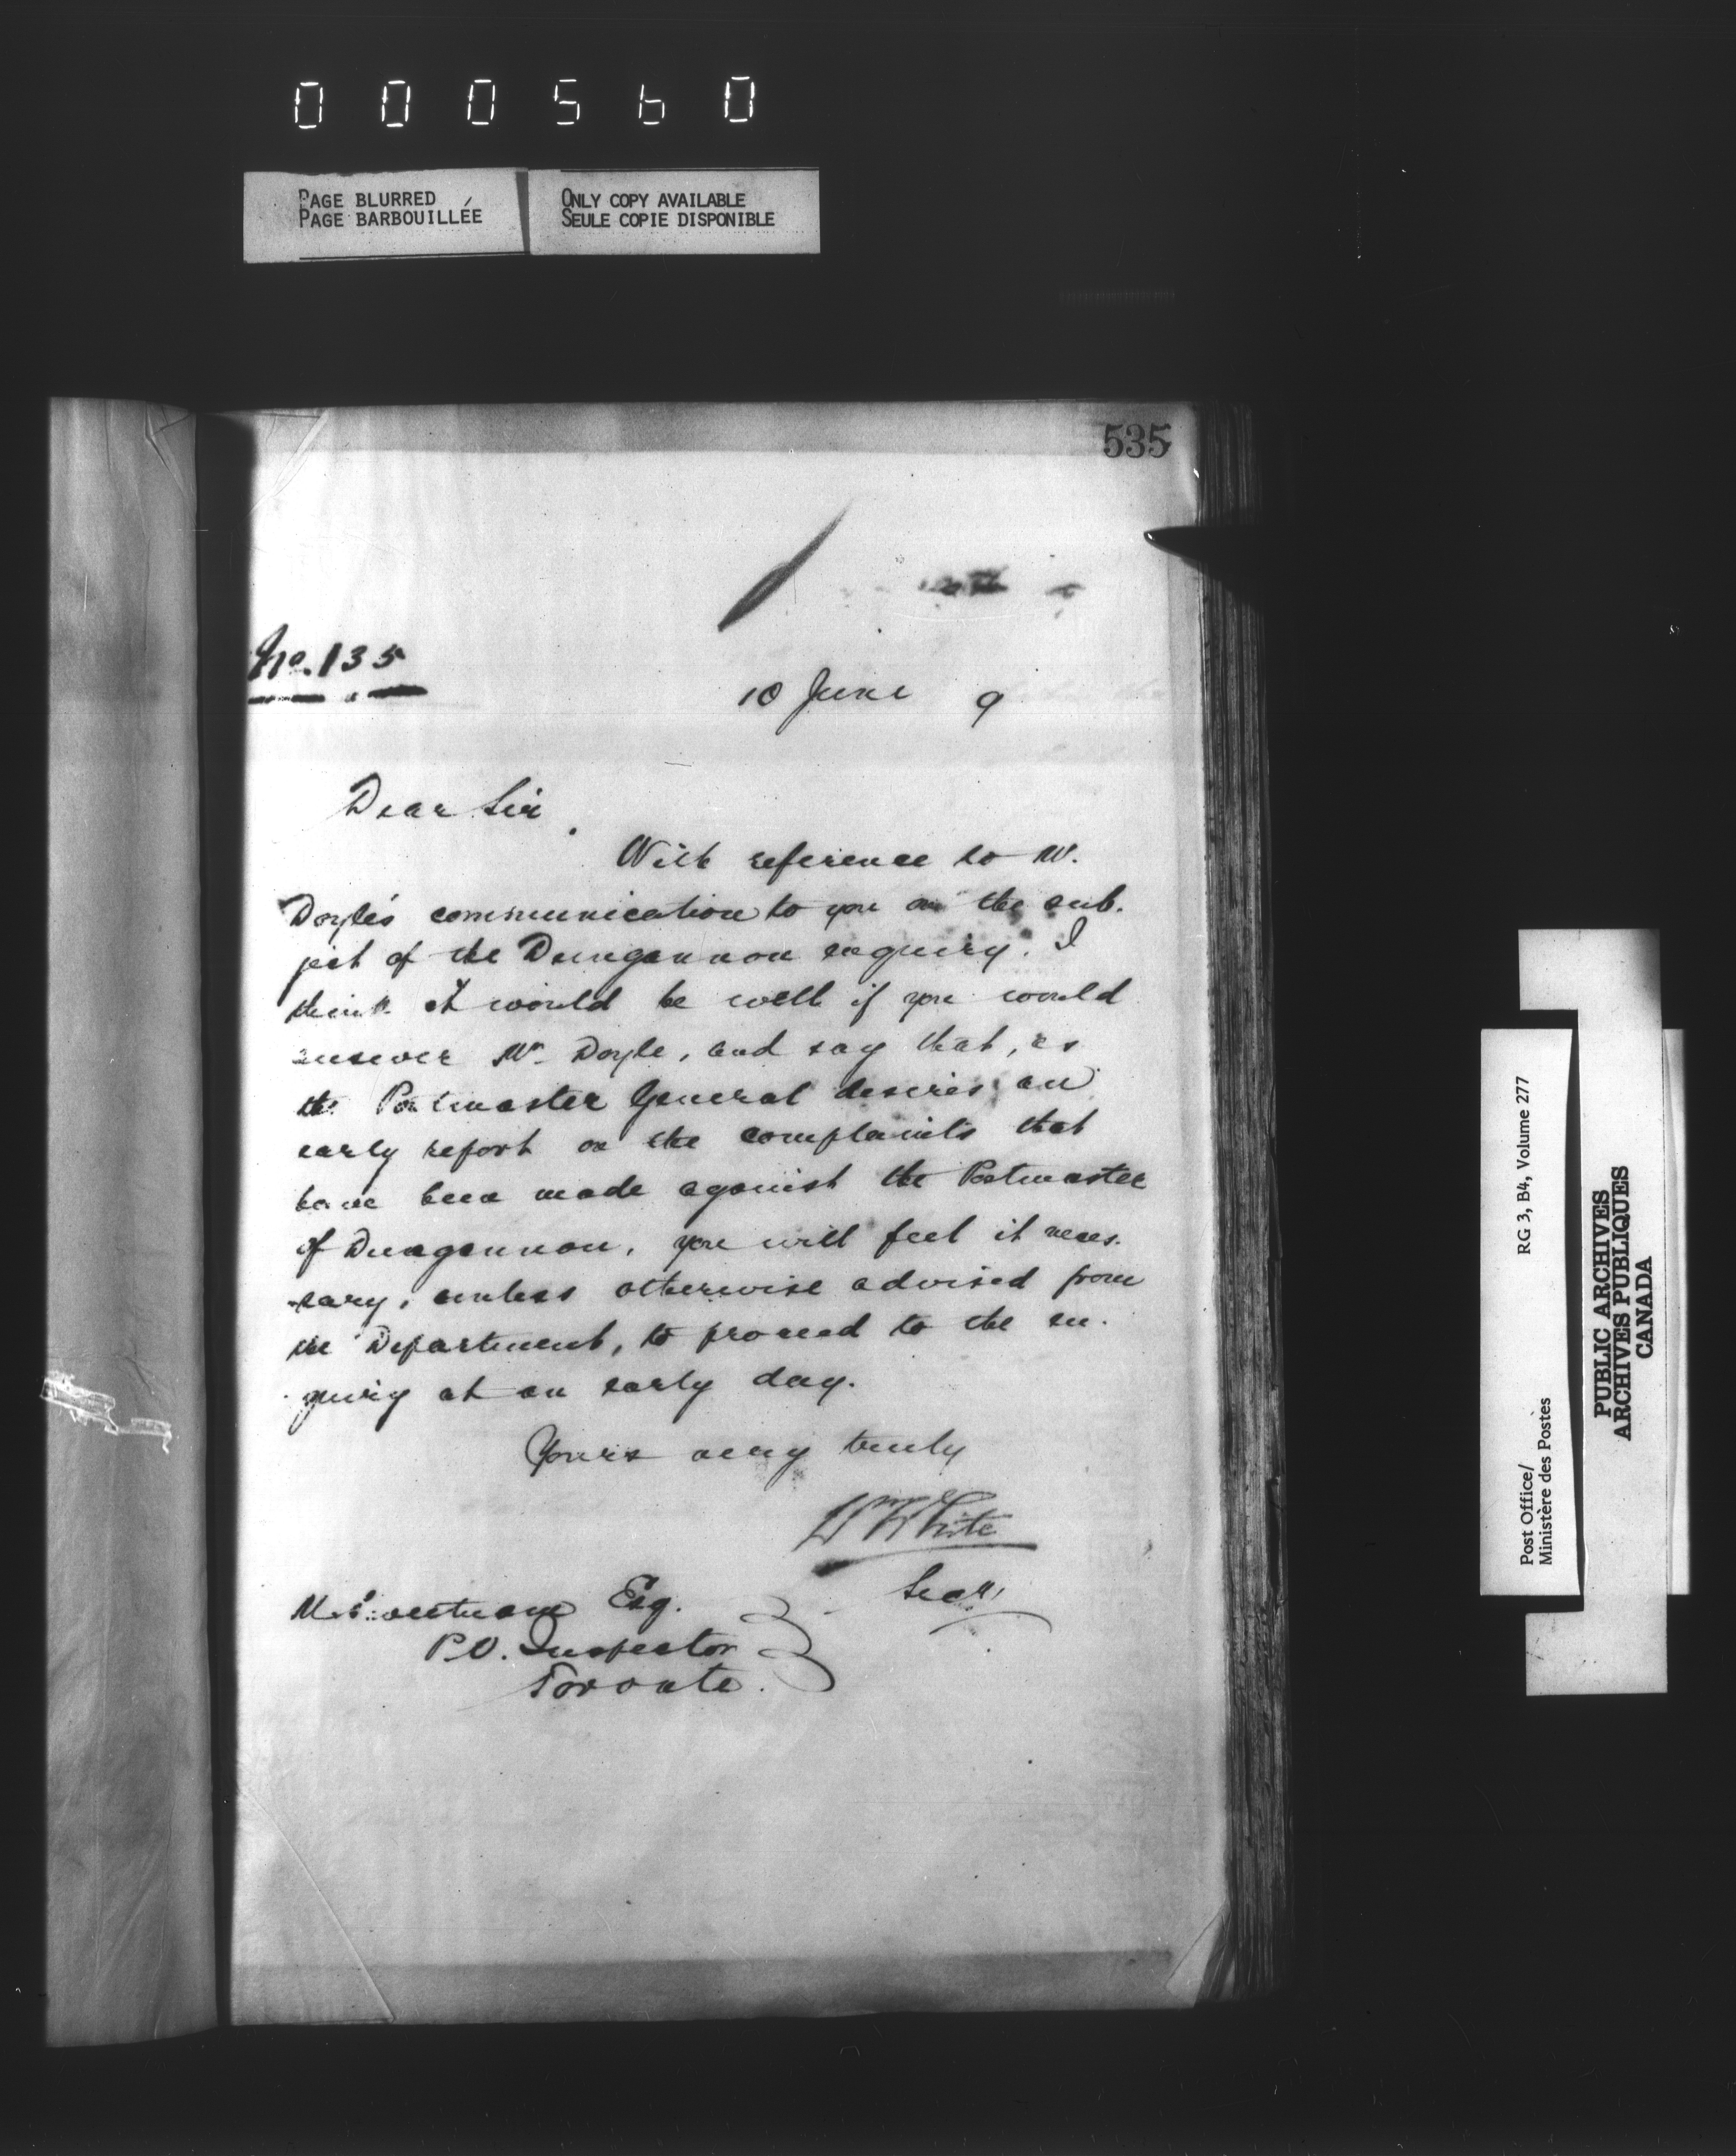 000560
PAGE BLURRED
PAGE BARBOUILLÉE
ONLY COPY AVAILABLE
SEULE COPIE DISPONIBLE
535
No. 135
10 June 9
Dear Sir
With reference to Mr.
Doyle's communication to you on the sub-
ject of the Dungannon enquiry. I
think it would be well if you would
answer Mr Doyle, and say that, as
the Postmaster General desires an
early report on the complaints that
have been made against the Postmaster
of Dungannon, you will feel it neces-
-sary, unless otherwise advised from
the Department, to proceed to the en-
quiry at an early day.
Yours very truly
Wm White
Secy
M. Sweetnam Esq.
P.O. Inspector
Toronto.
RG 3, B4, Volume 277
Post Office/
Ministère des Postes
PUBLIC ARCHIVES
ARCHIVES PUBLIQUES
CANADA